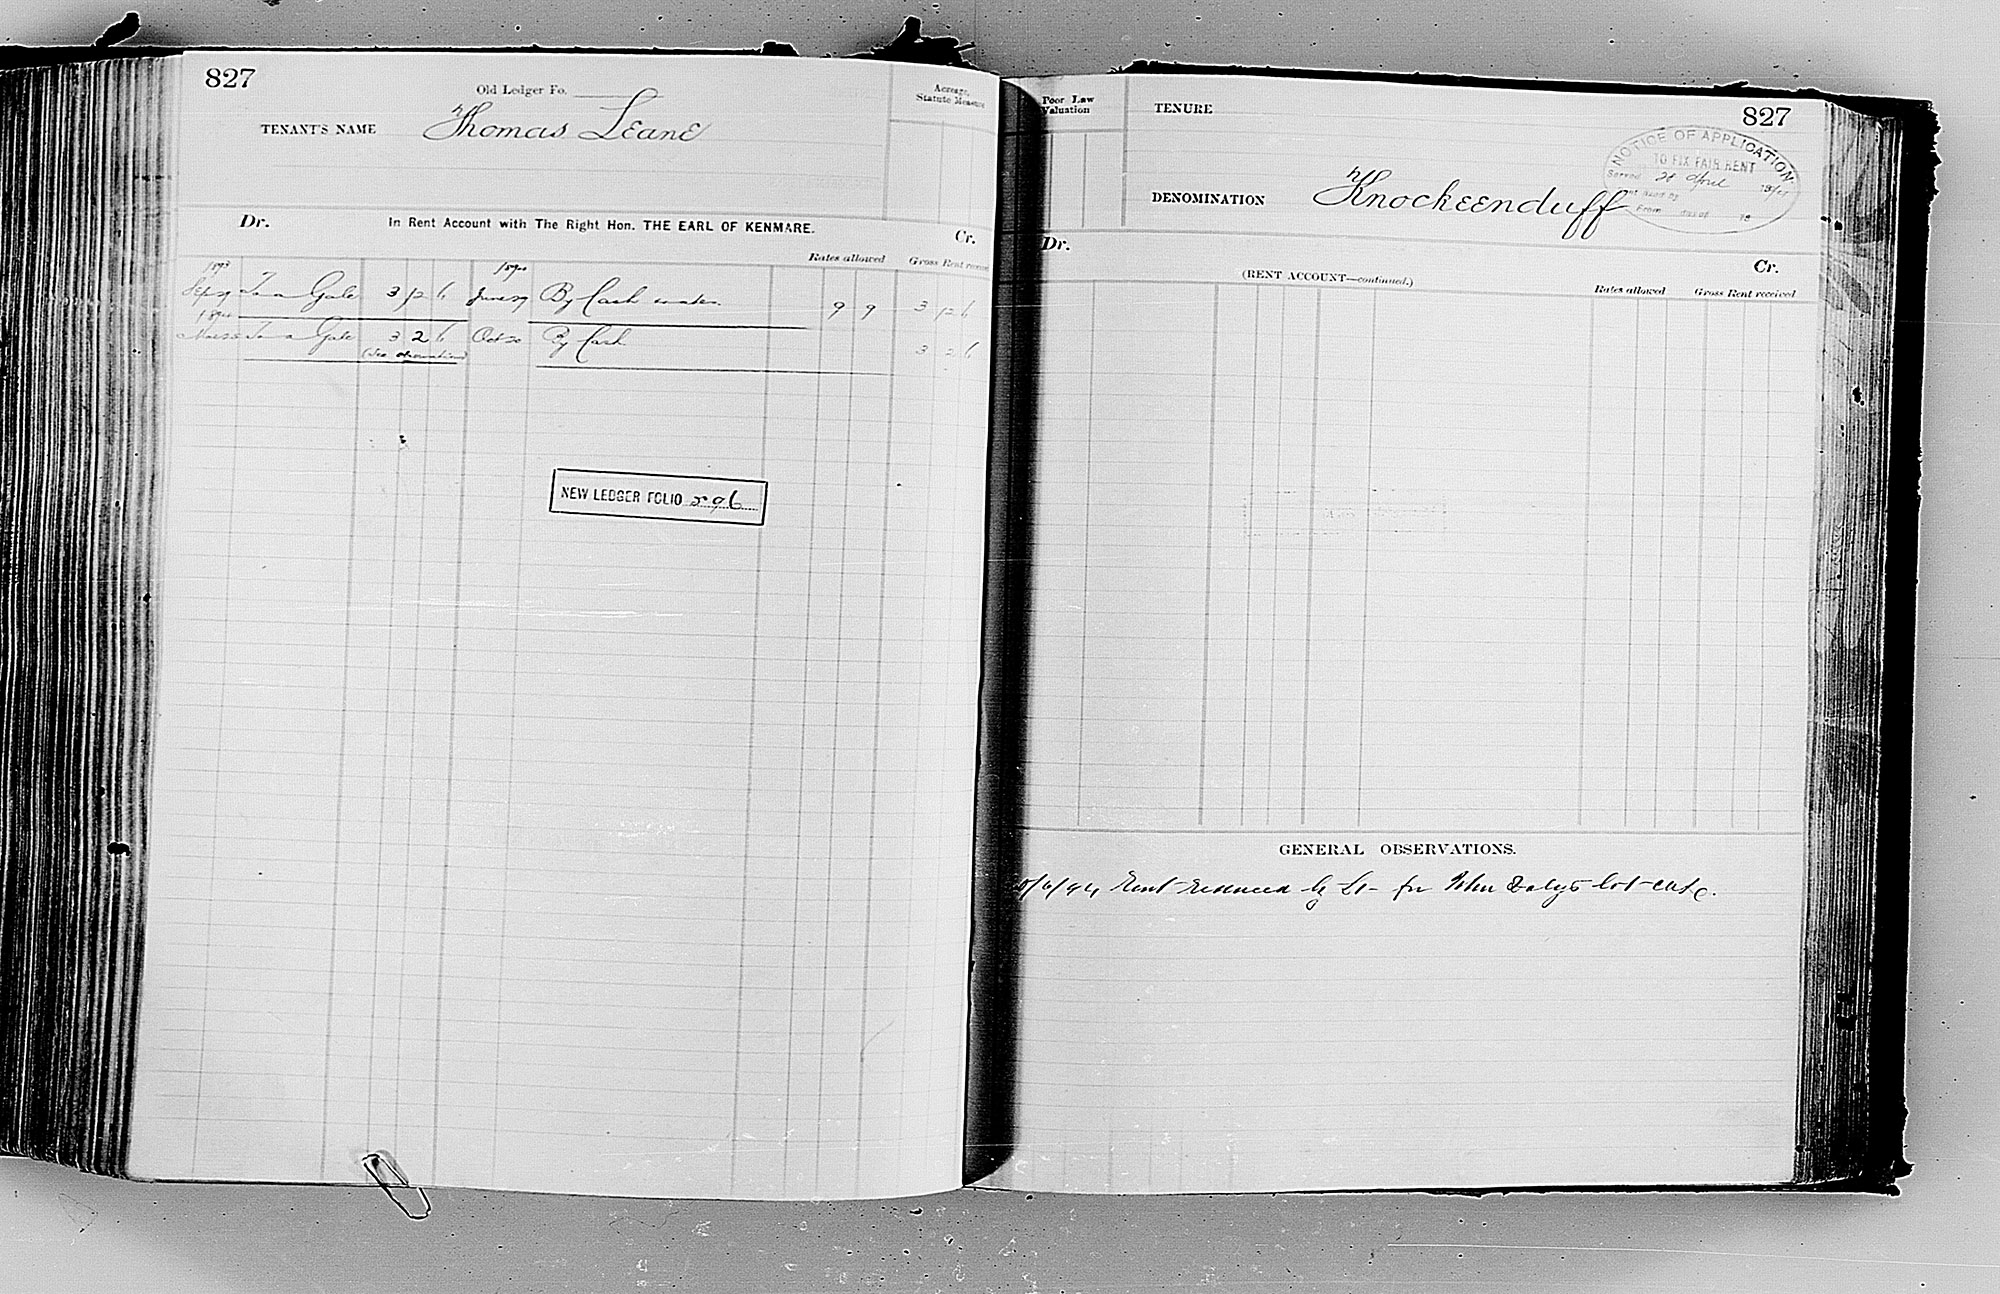 827
Old Ledger Fo.
TENANT'S NAME Thomas Leane
Acreage, Statute Measure
Dr. In Rent Account with The Right Hon. THE EARL OF KENMARE. Cr.
Rates allowed Gross Rent received
1893 1894
Sep 29 To a Gale 3 12 6 June 29 By Cash 9 9 3 12 6
1894
To a Gale 3 2 6 Oct 20 By Cash 3 2 6
(See observations)
NEW LEDGER FOLIO 296
Poor Law Valuation
TENURE
827
NOTICE OF APPLICATION
TO FIX FAIR RENT
Served 28 April
From
DENOMINATION Knockeenduff
Dr. Cr.
(RENT ACCOUNT—continued.)
Rates allowed Gross Rent received
GENERAL OBSERVATIONS.
/6/94 Rent reduced by for John Daly's